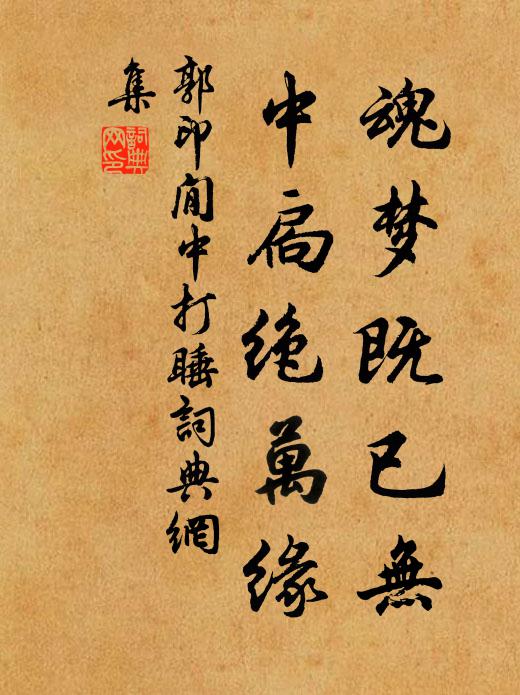 魂梦既已無
中扃绝萬缘
郭印閒中打睡詞典網
集
詞典
网印